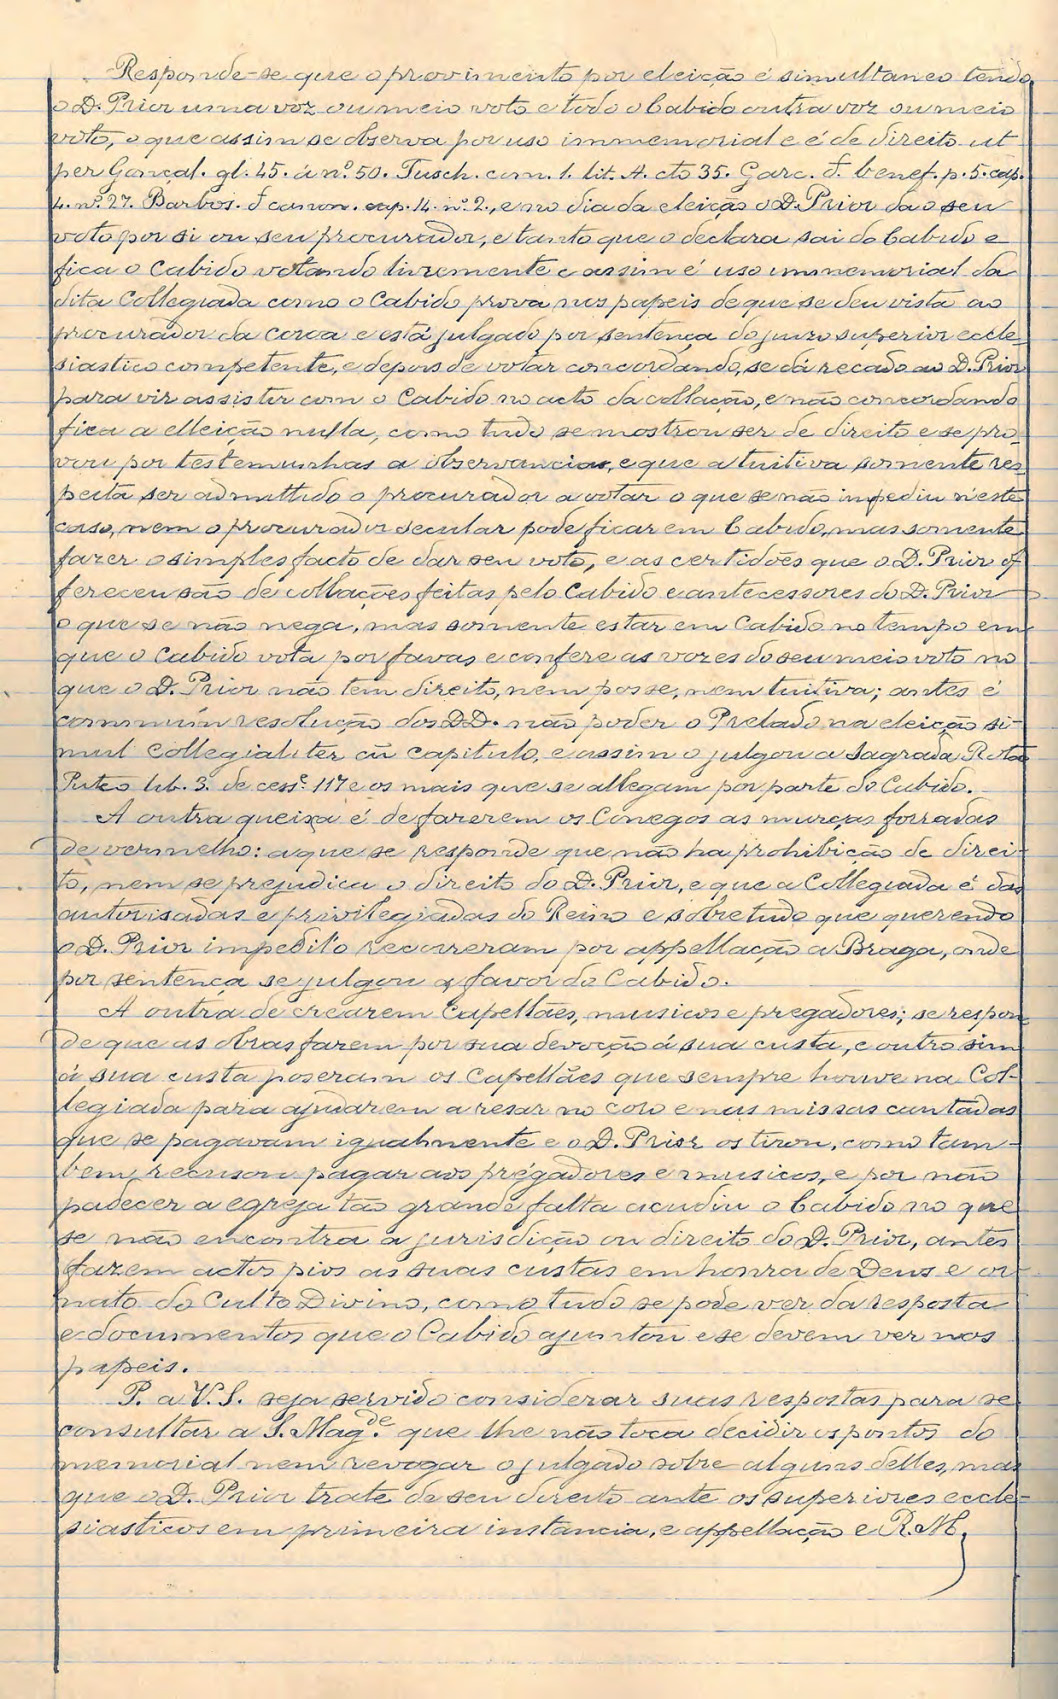 Responde-se que o provimento por eleição é simultaneo tendo
o D. Prior uma voz ou meio voto e todo o Cabido outra voz ou meio
voto, o que assim se observa por uso immemorial e é de direito ut
per Gonçal. gl. 45. á nº. 50. Tusch. com. 1. lit. A. cto 35. Garc. d. benef. p. 5. cap.
4. nº. 27. Barbos. d canon. cap. 14. nº. 2., e no dia da eleição o D. Prior da o seu
voto por si ou seu procurador, e tanto que o declara sai do Cabido e
fica o Cabido votando livremente e assim é uso immemorial da
dita Collegiada como o Cabido prova nos papeis de que se deu vista ao
procurador da coroa e está julgado por sentença do juizo superior eccle-
siastico competente, e depois de votar concordando, se dá recado ao D. Prior
para vir assistir com o Cabido no acto da collação, e não concordando
fica a elleição nulla, como tudo se mostrou ser de direito e se pro-
vou por testemunhas a observancia, e que a tuitiva somente res-
peita ser admittido o procurador a votar o que se não impediu n'este
caso, nem o procurador secular pode ficar em Cabido, mas somente
fazer o simples facto de dar seu voto, e as certidões que o D. Prior of
fereceu são de collações feitas pelo Cabido e antecessores do D. Prior
o que se não nega, mas somente estar em Cabido no tempo em
que o Cabido vota por favas e confere as vozes do seu meio voto no
que o D. Prior não tem direito, nem posse, nem tuitiva; antes é
commum resolução dos DD. não poder o Prelado na eleição si-
mul collegialiter cũ capitulo, e assim o julgou a Sagrada Rota
Puteo lib. 3. de cess.e 117 e os mais que se allegam por parte do Cabido.
A outra queixa é de fazerem os Conegos as murças forradas
de vermelho: a que se responde que não ha prohibição de direi-
to, nem se prejudica o direito do D. Prior, e que a Collegiada é das
autorisadas e privilegiadas do Reino e sobretudo que querendo
o D. Prior impedil'o recorreram por appellação a Braga, onde
por sentença se julgou a favor do Cabido.
A outra de crearem Capellães, musicos e pregadores; se respon-
de que as obras fazem por sua devoção á sua custa, e outro sim
á sua custa poseram os Capellães que sempre houve na Col-
legiada para ajudarem a resar no coro e nas missas cantadas
que se pagavam igualmente e o D. Prior os tirou, como tam-
bem recusou pagar aos prégadores e musicos, e por não
padecer a egreja tão grande falta acudiu o Cabido no que
se não encontra a jurisdição ou direito do D. Prior, antes
fazem actos pios as suas custas em honra de Deus e or
nato do Culto Divino, como tudo se pode ver da resposta
e documentos que o Cabido ajuntou e se devem ver nos
papeis.
P. a V. S. seja servido considerar suas respostas para se
consultar a S. Mag.de que lhe não toca decidir os pontos do
memorial nem revogar o julgado sobre alguns delles, mas
que o D. Prior trate de seu direito ante os superiores eccle-
siasticos em primeira instancia, e appellação e R. M.